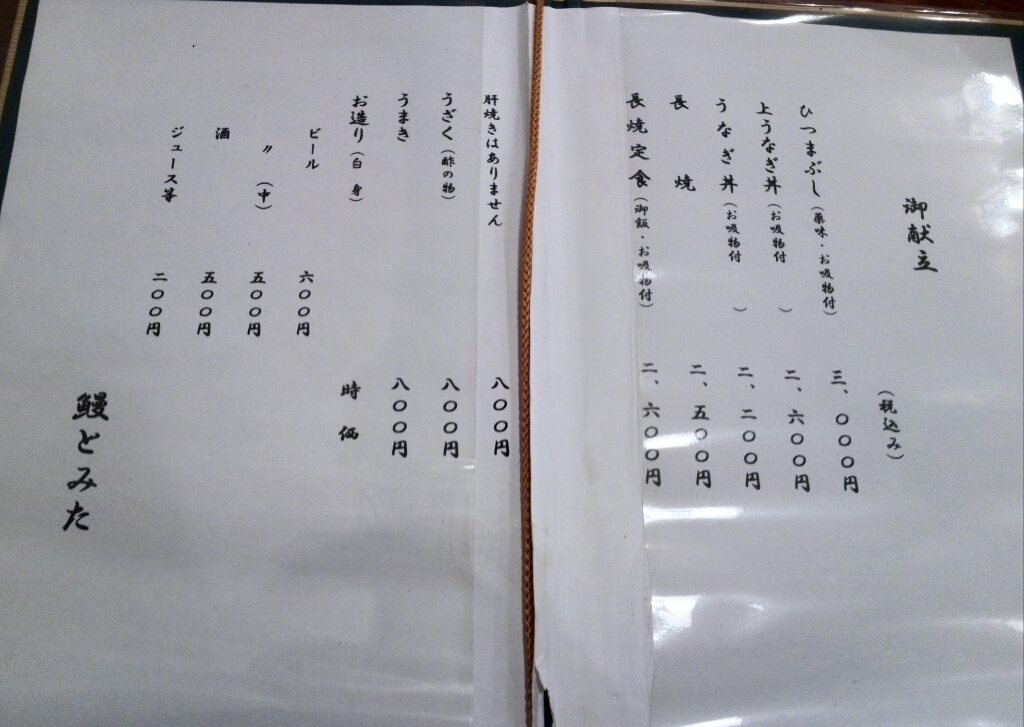 御献立
(税込み)
ひつまぶし(薬味・お吸物付) 三、〇〇〇円
上うなぎ丼(お吸物付) 二、六〇〇円
うなぎ丼(お吸物付) 二、二〇〇円
長 焼 二、五〇〇円
長焼定食(御飯・お吸物付) 二、六〇〇円
肝焼きはありません 八〇〇円
うざく(酢の物) 八〇〇円
うまき 八〇〇円
お造り(白 身) 時 価
ビール 六〇〇円
〃 (中) 五〇〇円
酒 五〇〇円
ジュース等 二〇〇円
鰻とみた